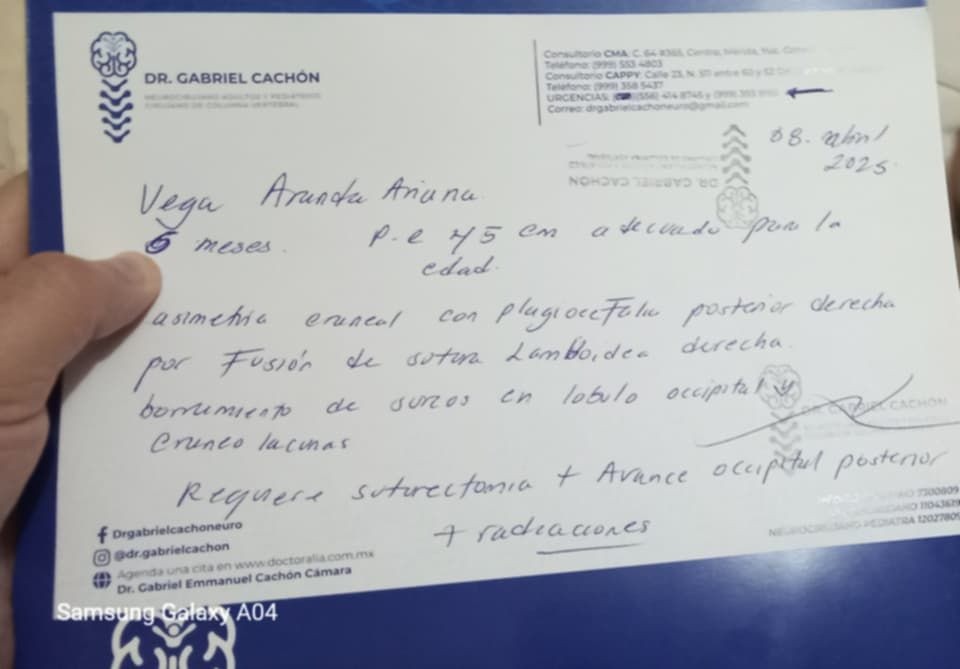 DR. GABRIEL CACHÓN
NEUROCIRUJANO ADULTOS Y PEDIÁTRICO
CIRUJANO DE COLUMNA VERTEBRAL
Consultorio CMA: C. 64 #365, Centro, Mérida,
Teléfono: (999) 553 4803
Consultorio CAPPY: Calle 23, N. 311 entre 60 y 52
Teléfono: (999) 358 5437
URGENCIAS: (556) 414 8745 y (999)
Correo: drgabrielcachonneuro@gmail.com
08. abril
2025.
DR. GABRIEL CACHÓN
Vega Aranda Ariana.
6 meses. P.e 45 cm adecuado para la
edad.
asimetria craneal con plagiocefalia posterior derecha
por Fusión de sutura Lamboidea derecha.
borramiento de surcos en lobulo occipital y
craneo lacunas
DR. GABRIEL CACHÓN
Requiere suturectomia + Avance occipital posterior
+ radiaciones
7300809
11043629
NEUROCIRUJANO PEDIATRA 12027809
Drgabrielcachoneuro
@dr.gabrielcachon
Agenda una cita en www.doctoralia.com.mx
Dr. Gabriel Emmanuel Cachón Cámara
Samsung Galaxy A04